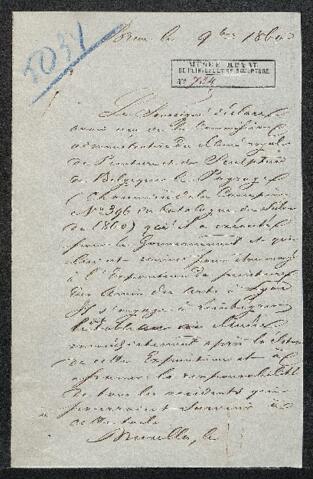 5031
le 9bre 1860
MUSÉE ROYAL
DE PEINTURE ET DE SCULPTURE
No 734
Le Soussigné déclare
avoir reçu de la Commission
administrative du Musée royal
de Peinture et de Sculpture
de Belgique le Paysage
(Chaumière de la Campine
No 396 du catalogue du Salon
de 1860) qu'il a exécuté
pour le Gouvernement et qui
doit
à l'Exposition de peinture
des amis des arts à Lyon
Il s'engage à réintégrer
le tableau au Musée
immédiatement après la clôture
de cette Exposition et à
assumer la responsabilité
de tous les accidents qui
pourraient survenir à
cette toile
Bruxelles, le